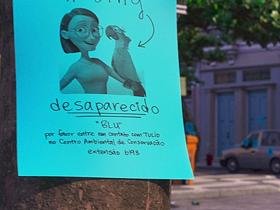 desaparecido
"BLU"
por favor entre em contato com TULIO
no Centro Ambiental de Conservação
extensão b193